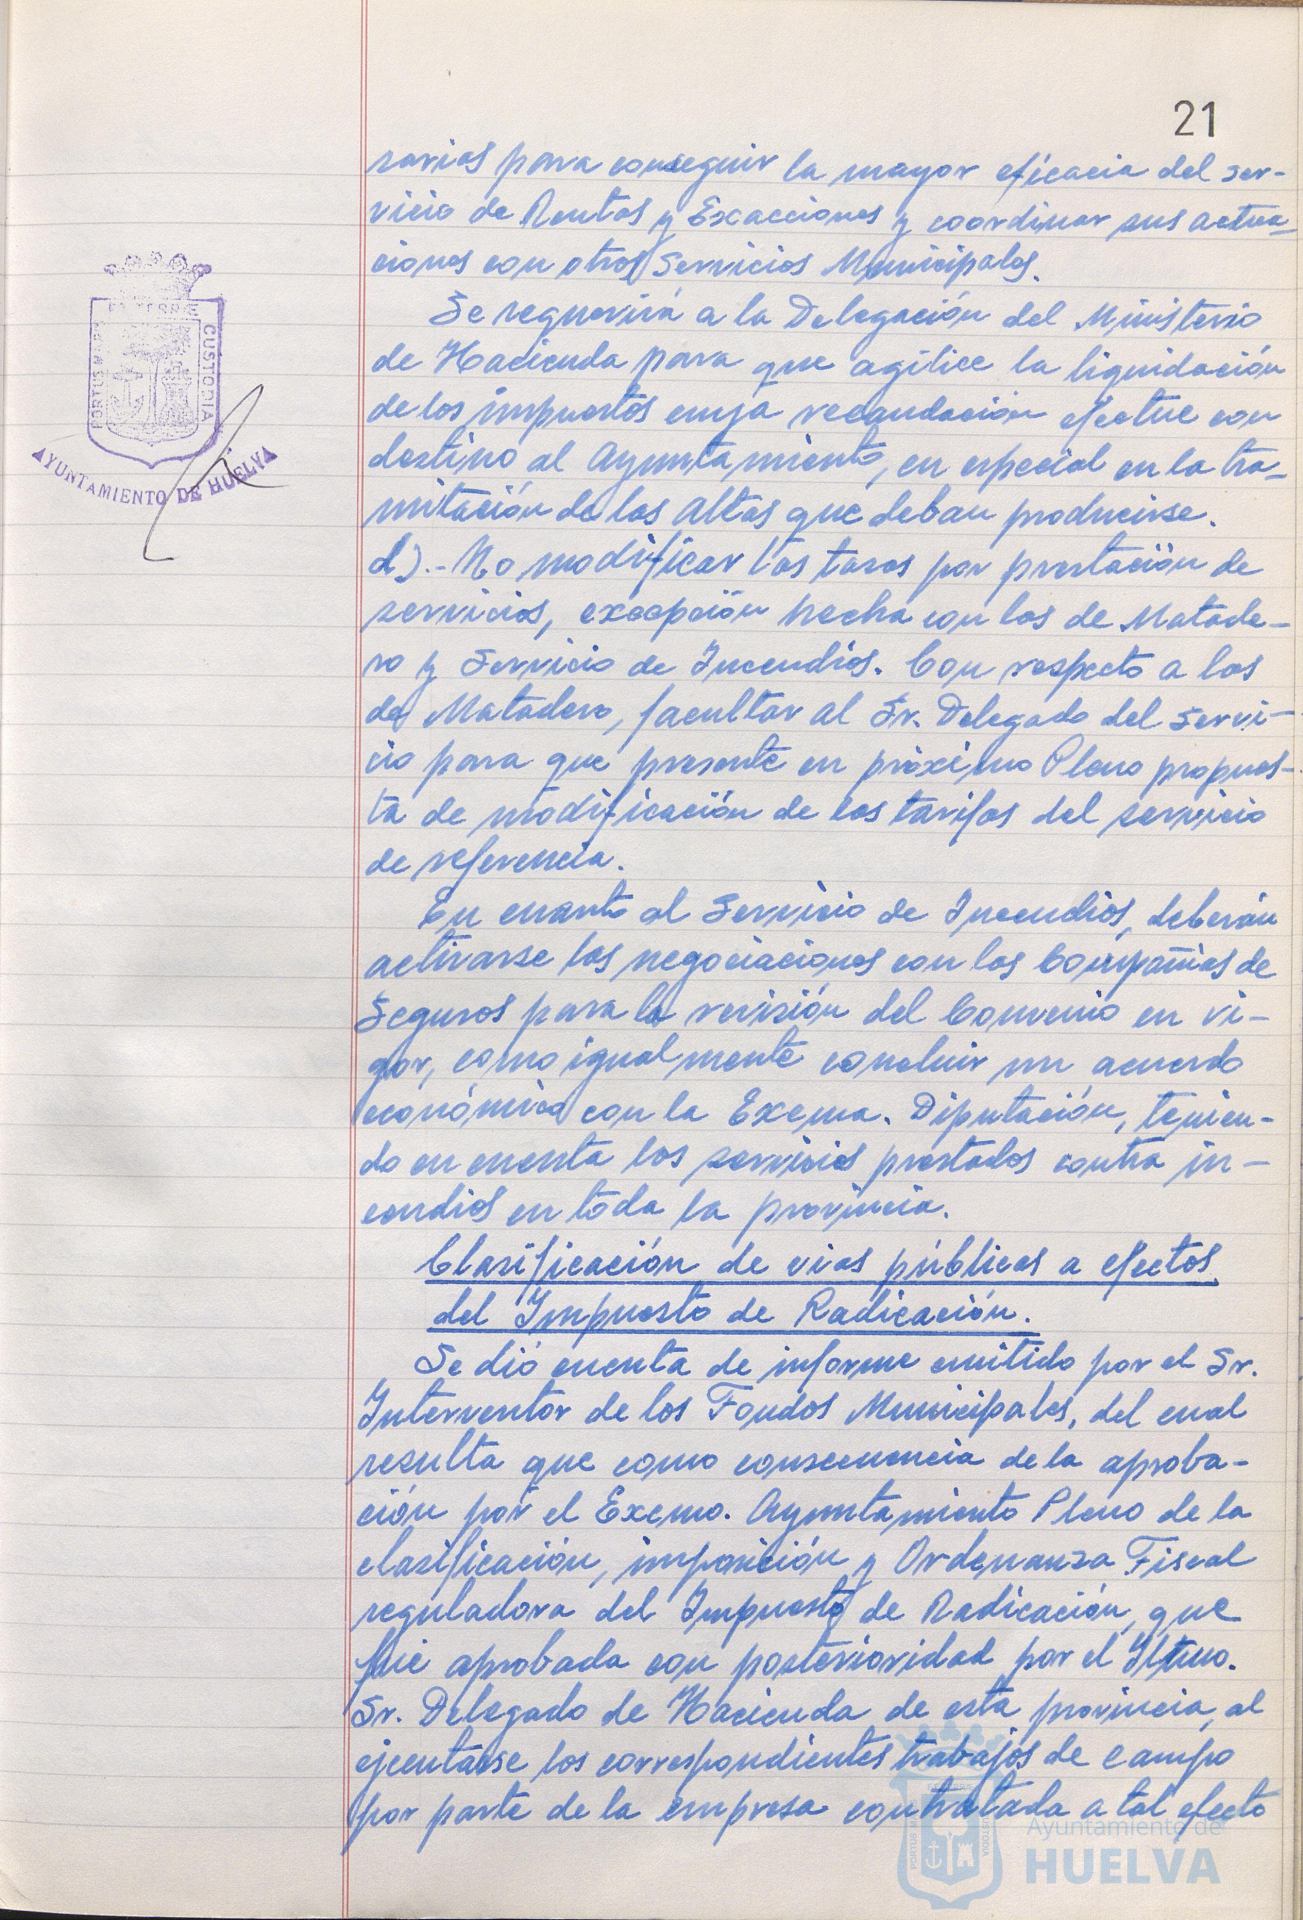 21
sarias para conseguir la mayor eficacia del ser-
vicio de Rentas y Exacciones y coordinar sus actua-
ciones con otros Servicios Municipales.
Se requerirá a la Delegación del Ministerio
de Hacienda para que agilice la liquidación
de los impuestos cuya recaudación efectue con
destino al Ayuntamiento, en especial en la tra-
mitación de las Altas que deban producirse.
d).- No modificar las tasas por prestación de
servicios, excepción hecha con las de Matade-
ro y Servicio de Incendios. Con respecto a las
de Matadero, facultar al Sr. Delegado del Servi-
cio para que presente en próximo Pleno propues-
ta de modificación de las tarifas del servicio
de referencia.
En cuanto al Servicio de Incendios, deberán
activarse las negociaciones con las Compañias de
Seguros para la revisión del Convenio en vi-
gor, como igualmente concluir un acuerdo
económico con la Excma. Diputación, tenien-
do en cuenta los servicios prestados contra in-
cendios en toda la provincia.
Clasificación de vias públicas a efectos
del Impuesto de Radicación.
Se dió cuenta de informe emitido por el Sr.
Interventor de los Fondos Municipales, del cual
resulta que como consecuencia de la aproba-
ción por el Excmo. Ayuntamiento Pleno de la
clasificación, imposición y Ordenanza Fiscal
reguladora del Impuesto de Radicación, que
fue aprobada con posterioridad por el Iltmo.
Sr. Delegado de Hacienda de esta provincia, al
ejecutarse los correspondientes trabajos de campo
por parte de la empresa contratada a tal efecto
PORTUS MARIS ET TERRÆ CUSTODIA
AYUNTAMIENTO DE HUELVA
Ayuntamiento de
HUELVA